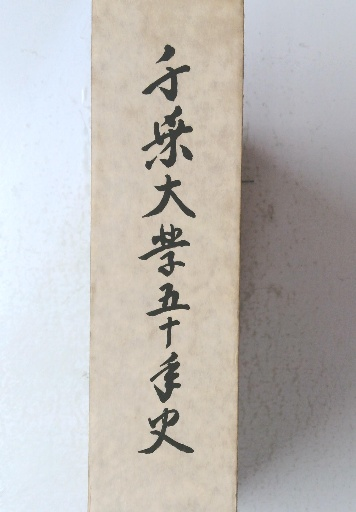 千葉大学五十年史